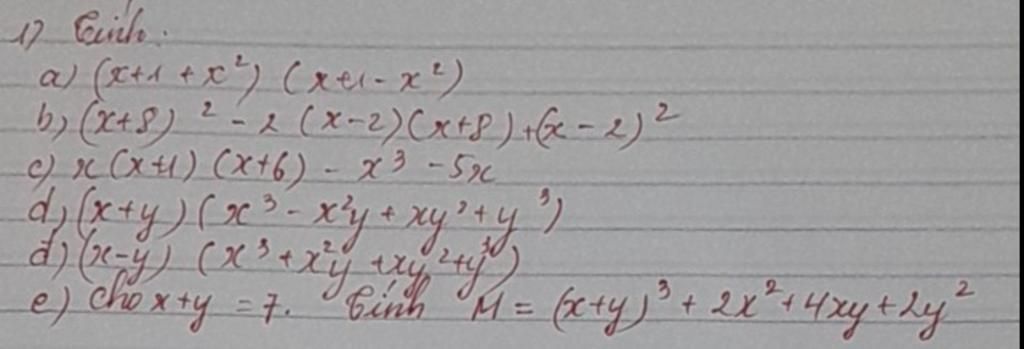 1) Tính:
a) (x+1+x²) (x+1-x²)
b) (x+8)² - 2 (x-2)(x+8)+(x-2)²
c) x(x+1) (x+6) - x³ - 5x
d) (x+y) (x³ - x²y + xy² + y³)
đ) (x-y) (x³+x²y+xy²+y³)
e) Cho x+y = 7. Tính M = (x+y)³ + 2x²+4xy+2y²